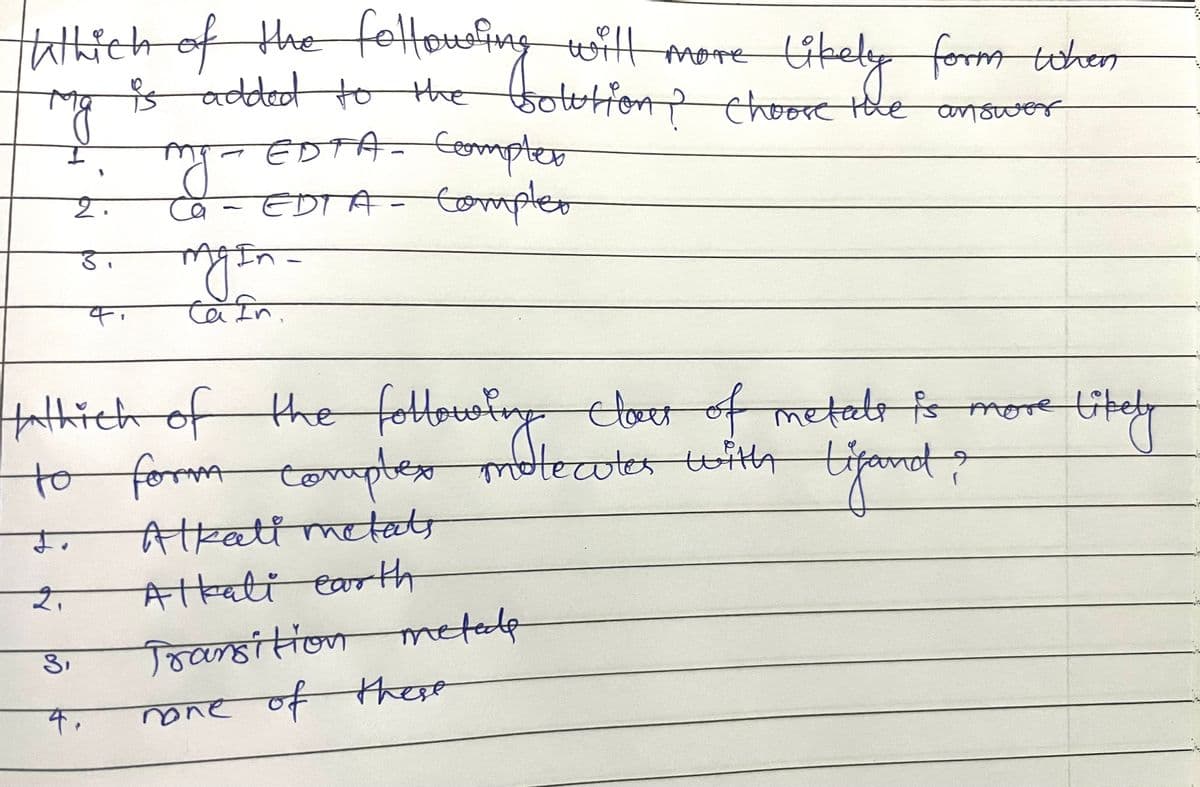 Which of the following will more likely form when
Mg is added to the solution? Choose the answer
1. Mg - EDTA - Complex
2. Ca - EDTA - Complex
3. MgIn -
4. CaIn.
Which of the following class of metals is more likely
to form complex molecules with ligand?
1. Alkali metals
2. Alkali earth
3. Transition metals
4. none of these